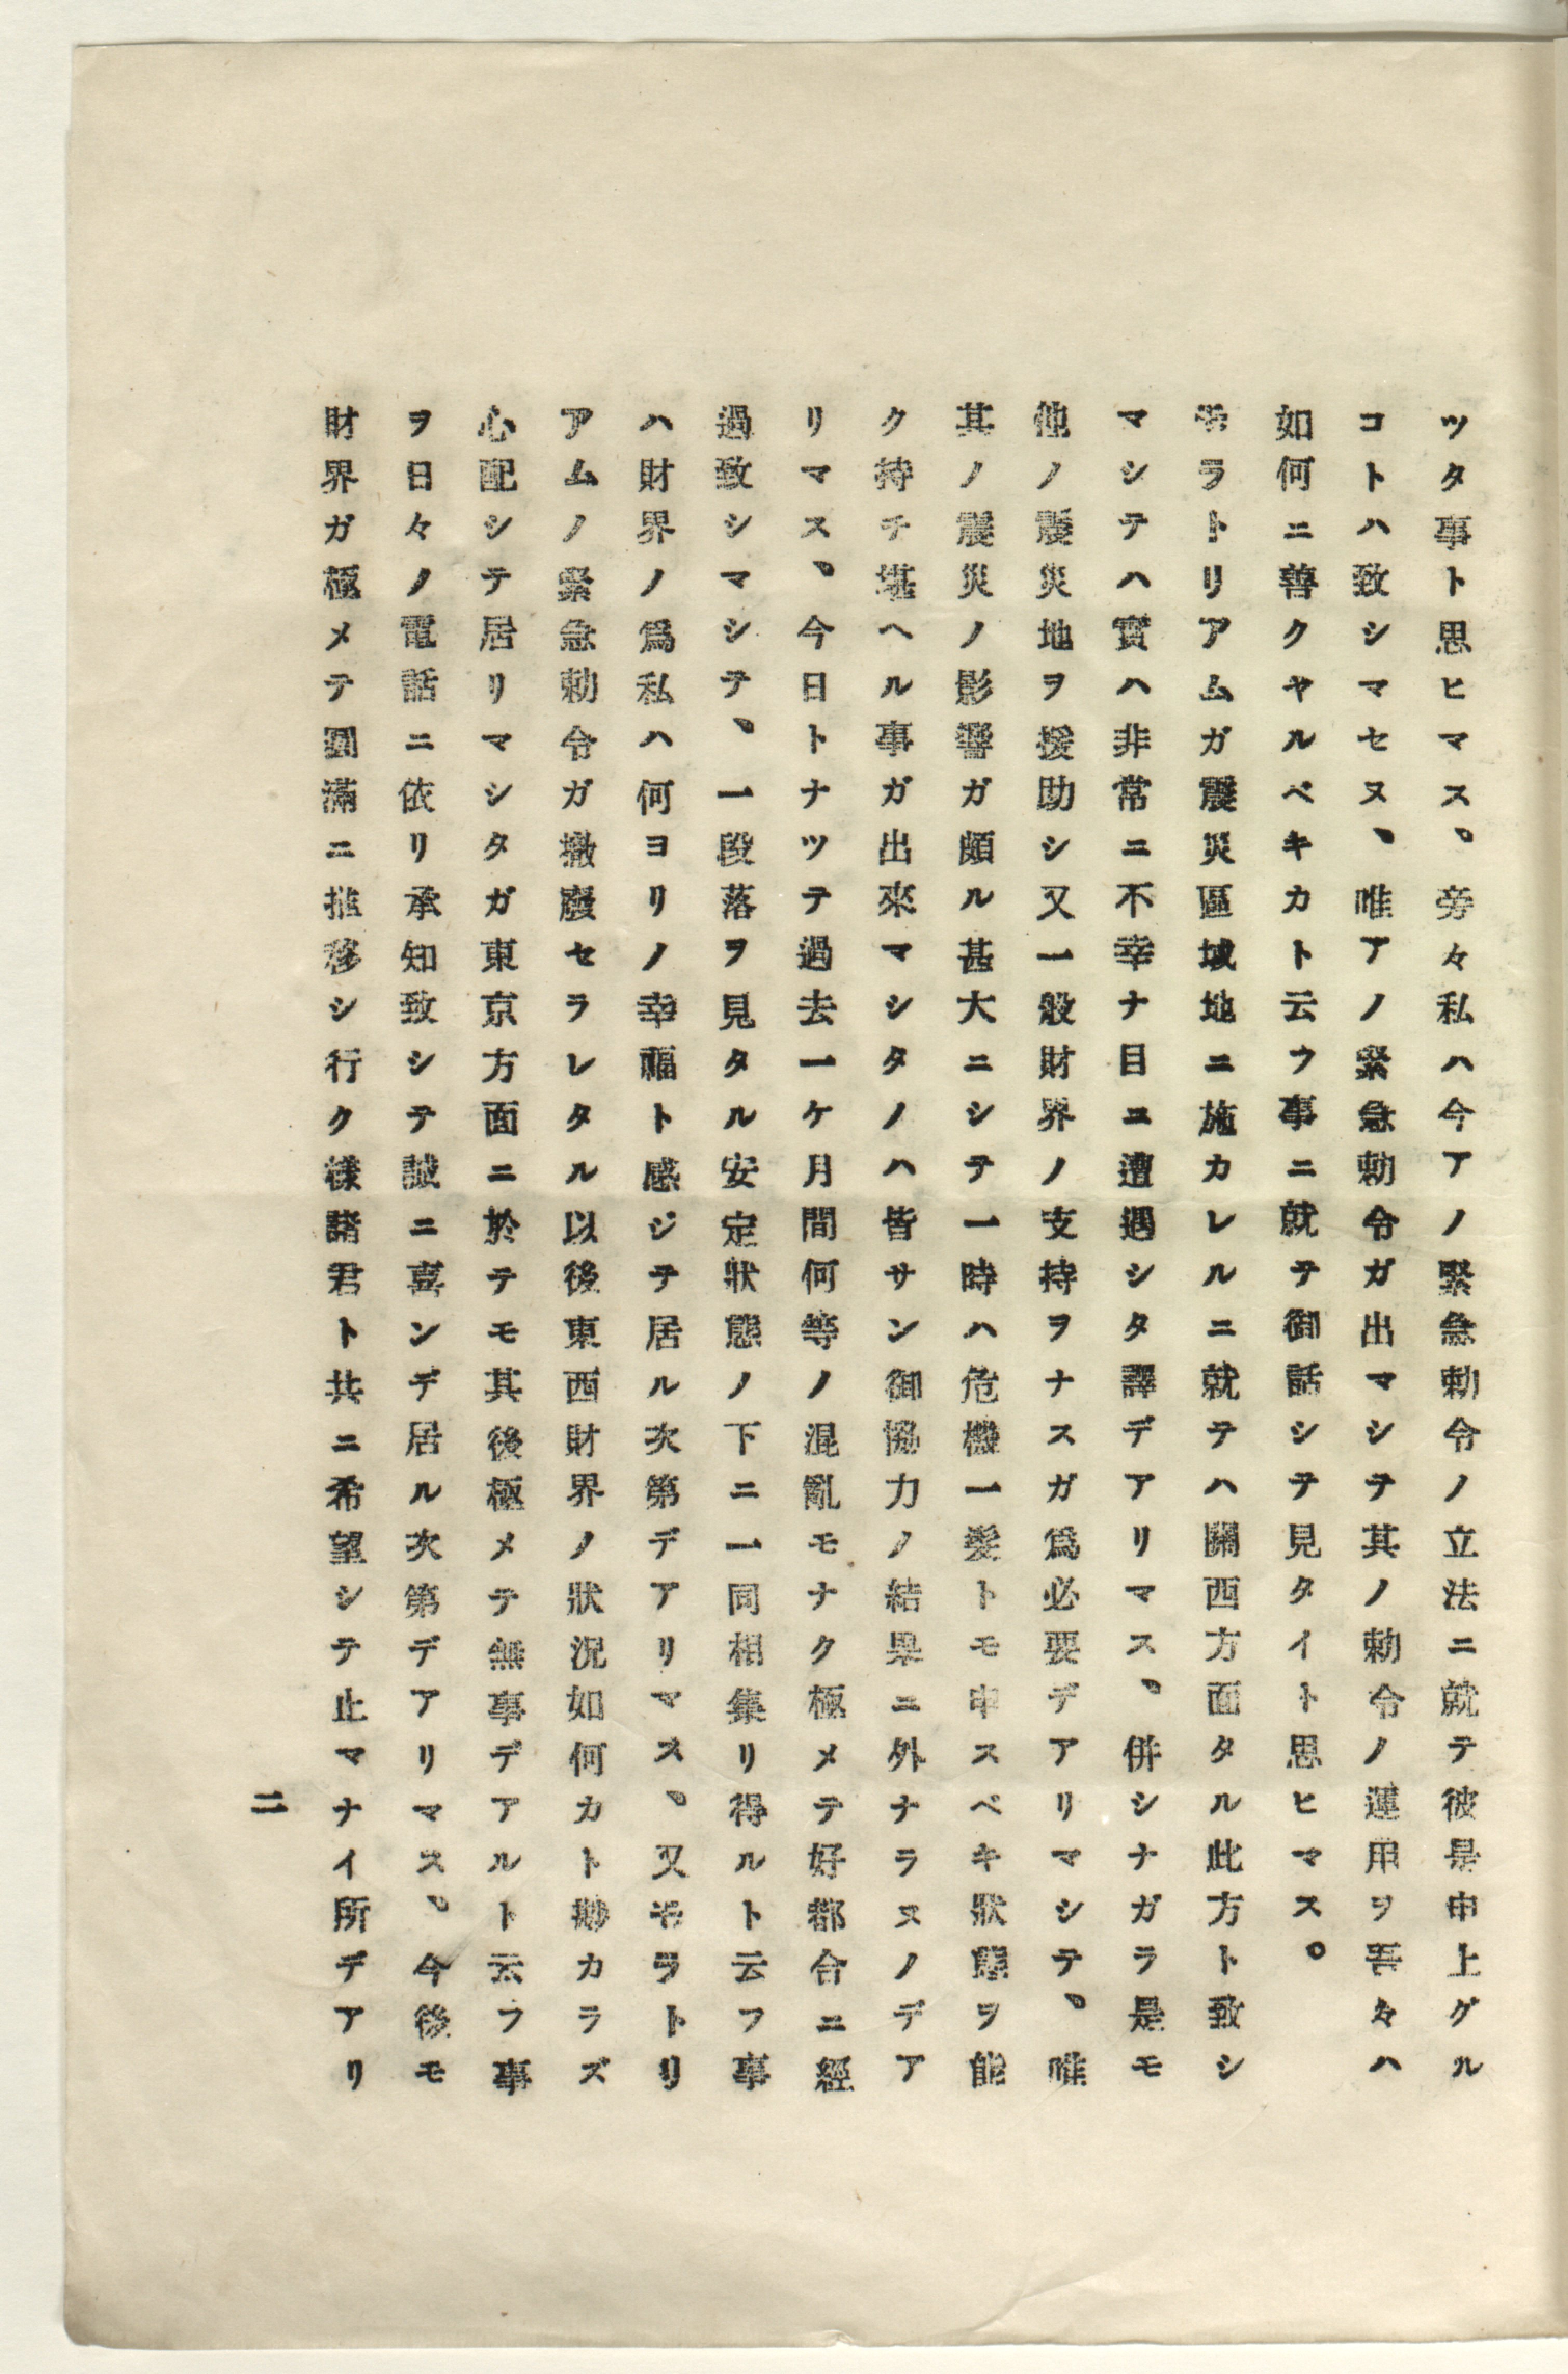 ツタ事ト思ヒマス、旁々私ハ今アノ緊急勅令ノ立法ニ就テ彼是申上グル
コトハ致シマセヌ、唯アノ緊急勅令ガ出マシテ其ノ勅令ノ運用ヲ吾々ハ
如何ニ善クヤルベキカト云フ事ニ就テ御話シテ見タイト思ヒマス。
モラトリアムガ震災區域地ニ施カレルニ就テハ關西方面タル此方ト致シ
マシテハ實ハ非常ニ不幸ナ目ニ遭遇シタ譯デアリマス、併シナガラ是モ
他ノ震災地ヲ援助シ又一般財界ノ支持ヲナスガ爲必要デアリマシテ、唯
其ノ震災ノ影響ガ頗ル甚大ニシテ一時ハ危機一髮トモ申スベキ狀態ヲ能
ク持チ堪ヘル事ガ出來マシタノハ皆サン御協力ノ結果ニ外ナラヌノデア
リマス、今日トナツテ過去一ケ月間何等ノ混亂モナク極メテ好都合ニ經
過致シマシテ、一段落ヲ見タル安定狀態ノ下ニ一同相集リ得ルト云フ事
ハ財界ノ爲私ハ何ヨリノ幸福ト感ジテ居ル次第デアリマス、又モラトリ
アムノ緊急勅令ガ撤廢セラレタル以後東西財界ノ狀況如何カト尠カラズ
心配シテ居リマシタガ東京方面ニ於テモ其後極メテ無事デアルト云フ事
ヲ日々ノ電話ニ依リ承知致シテ誠ニ喜ンデ居ル次第デアリマス、今後モ
財界ガ極メテ圓滿ニ推移シ行ク樣諸君ト共ニ希望シテ止マナイ所デアリ
二